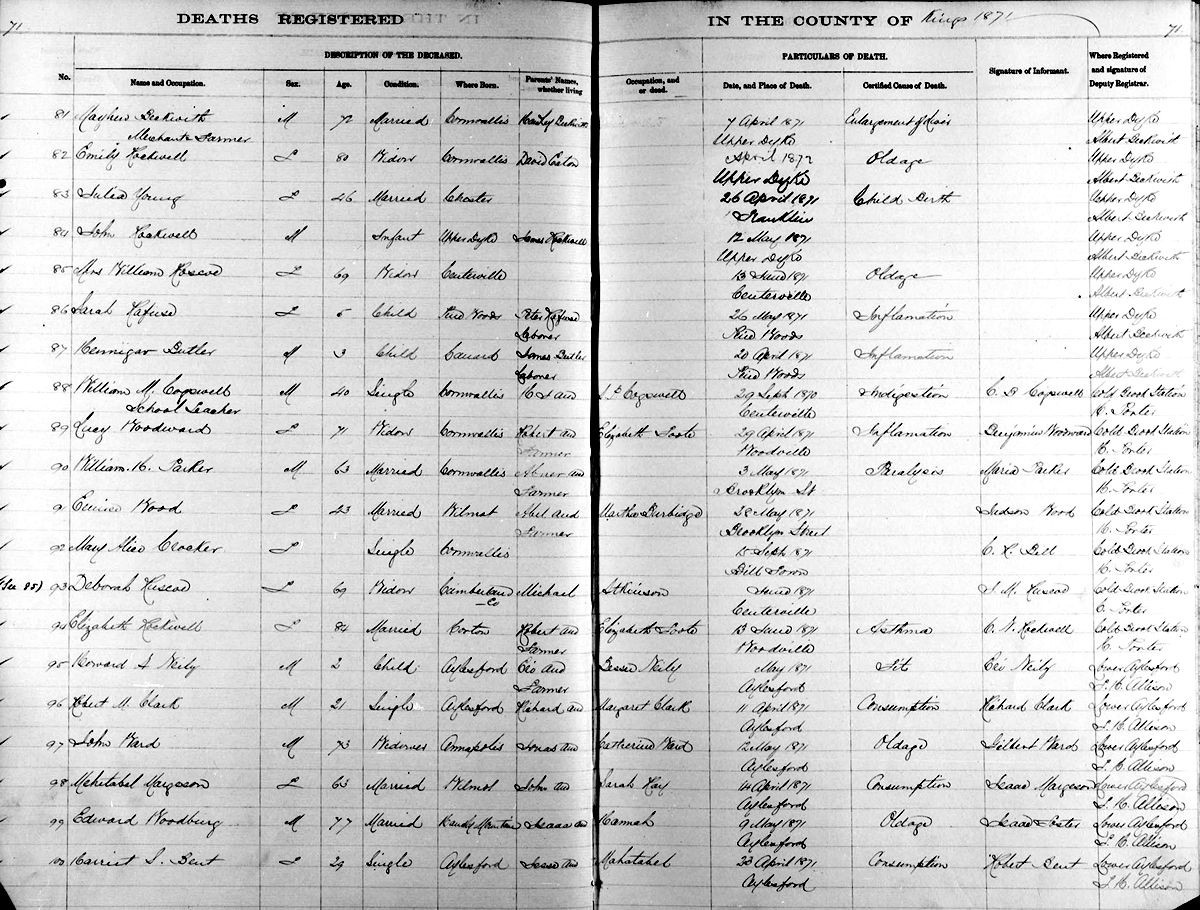 71
DEATHS REGISTERED IN THE COUNTY OF Kings 1871
71
DESCRIPTION OF THE DECEASED. PARTICULARS OF DEATH.
No. Name and Occupation. Sex. Age. Condition. Where Born. Parents' Names, whether living Occupation, and or dead. Date, and Place of Death. Certified Cause of Death. Signature of Informant. Where Registered and signature of Deputy Registrar.
81 Mayhew Beckwith M 72 Married Cornwallis Beckwith 7 April 1871 Enlargement of Upper Dyke
Merchant & Farmer Upper Dyke Albert Beckwith
82 Emily Rockwell F 80 Widow Cornwallis David Eaton April 1872 Oldage Upper Dyke
Upper Dyke Albert Beckwith
83 Julia Young F 46 Married Chester 26 April 1871 Child Birth Upper Dyke
Franklin Albert Beckwith
84 John Rockwell M Infant Upper Dyke James Rockwell 12 May 1871 Upper Dyke
Upper Dyke Albert Beckwith
85 Mrs William Roscoe F 69 Widow Centerville 13 June 1871 Oldage Upper Dyke
Centerville Albert Beckwith
86 Sarah Rafuse F 5 Child Woods Peter Rafuse 26 May 1871 Inflamation Upper Dyke
Laborer Woods Albert Beckwith
87 Kennigar Butler M 3 Child Canard James Butler 20 April 1871 Inflamation Upper Dyke
Laborer Woods Albert Beckwith
88 William M. Cogswell M 40 Single Cornwallis and Cogswell 29 Sept 1870 Indigestion C. S Cogswell Cold Brook Station
School Teacher Centerville H. Porter
89 Lucy Woodward F 71 Widow Cornwallis Robert and Elizabeth Foote 29 April 1871 Inflamation Benjamin Woodward Cold Brook Station
Farmer Woodville H. Porter
90 William. H. Parker M 63 Married Cornwallis Abner and 3 May 1871 Paralysis Maria Parker Cold Brook Station
Farmer Brooklyn St H. Porter
91 Wood F 43 Married Wilmot Abel and Martha Burbidge 28 May 1871 Judson Wood Cold Brook Station
Farmer Brooklyn Street H. Porter
92 Mary Alice Crocker F Single Cornwallis 15 Sept 1871 C. R. Bill Cold Brook Station
Bill Town H. Porter
(See 85) 93 Deborah Ruscoe F 69 Widow Cumberland Co Michael Atkinson June 1871 Ruscoe Cold Brook Station
Centerville Porter
94 Elizabeth Rockwell F 84 Married Horton Robert and Elizabeth Foote 13 June 1871 Asthma C. N. Rockwell Cold Brook Station
Farmer Woodville H. Porter
95 Howard Neily M 2 Child Aylesford Geo and Bessie Neily May 1871 Fit Geo Neily Lower Aylesford
Farmer Aylesford T. H. Allison
96 Robert M. Clark M 21 Single Aylesford Richard and Margaret Clark 11 April 1871 Consumption Richard Clark Lower Aylesford
Aylesford T. H. Allison
97 John Ward M 73 Widower Annapolis Jonas and Catherine Ward 12 May 1871 Oldage Gilbert Ward Lower Aylesford
Aylesford T. H. Allison
98 Mehitabel Margeson F 63 Married Wilmot John and Sarah Ray 14 April 1871 Consumption Isaac Margeson Lower Aylesford
Aylesford T. H. Allison
99 Edward Woodbury M 77 Married Mountain Isaac and Hannah 9 May 1871 Oldage Isaac Foster Lower Aylesford
Aylesford T. H. Allison
100 Harriet S. Bent F 29 Single Aylesford Jesse and Mahatabel 23 April 1871 Consumption Robert Bent Lower Aylesford
Aylesford T. H. Allison